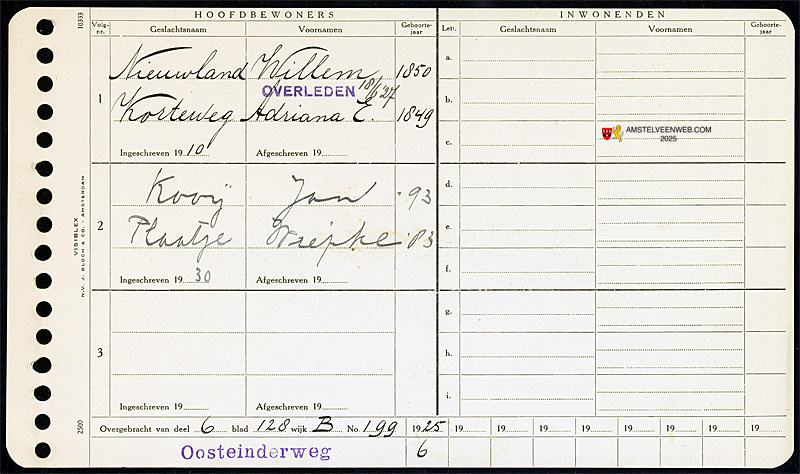 HOOFDBEWONERS
INWONENDEN
Volg-nr. Geslachtsnaam Voornamen Geboorte-jaar Lett. Geslachtsnaam Voornamen Geboorte-jaar
10333
Nieuwland Willem 1850
1
OVERLEDEN 18/6 '27
Korteweg Adriana E. 1849
Ingeschreven 1910 Afgeschreven 19
a.
b.
c.
AMSTELVEENWEB.COM
2025
Kooij Jan '93
2
Plaatje
Ingeschreven 1930 Afgeschreven 19
d.
e.
f.
VISIBLEX
N.V. J. BLOCH & CO. - AMSTERDAM
3
Ingeschreven 19 Afgeschreven 19
g.
h.
i.
2500
Overgebracht van deel 6 blad 128 wijk B No. 199 1925 19 19 19 19 19 19 19 19
Oosteinderweg 6